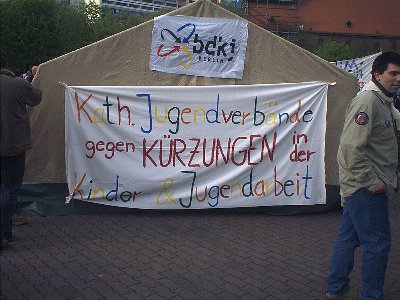 bdkj
BERLIN
Kath. Jugendverbände
gegen KÜRZUNGEN in der
Kinder & Jugendarbeit